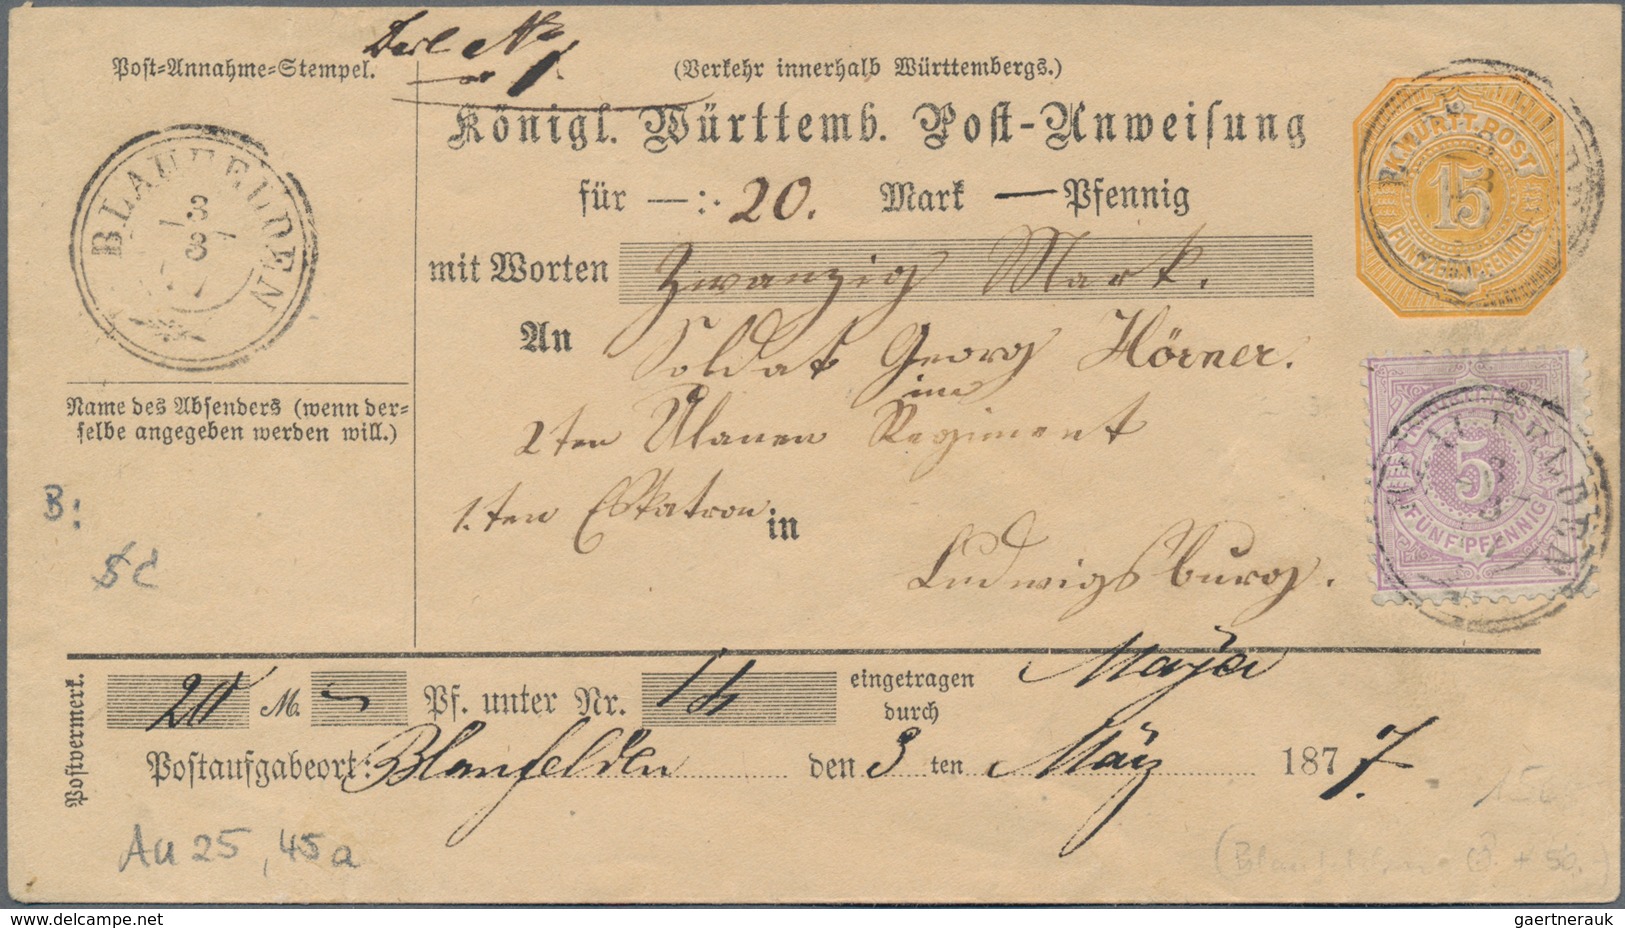 Post-Annahme-Stempel.
(Verkehr innerhalb Württembergs.)
Königl. Württemb. Post-Anweisung
für —:· 20. Mark — Pfennig
mit Worten Zwanzig Mark.
An Soldat Georg Hörner.
im
2ten Ulanen Regiment
1.ten Eskatron in
Ludwigsburg.
BLAUFELDEN
3/3
Name des Absenders (wenn der-
selbe angegeben werden will.)
B:
K. WÜRTT. POST
15
FÜNFZEHN PFENNIG
5
FÜNF PFENNIG
Postvermerk.
20 M. — Pf. unter Nr. 14 eingetragen
durch
Mayer
Postaufgabeort: Blaufelden den 3 ten März 1877.
Au 25, 45a
gaertnerauk